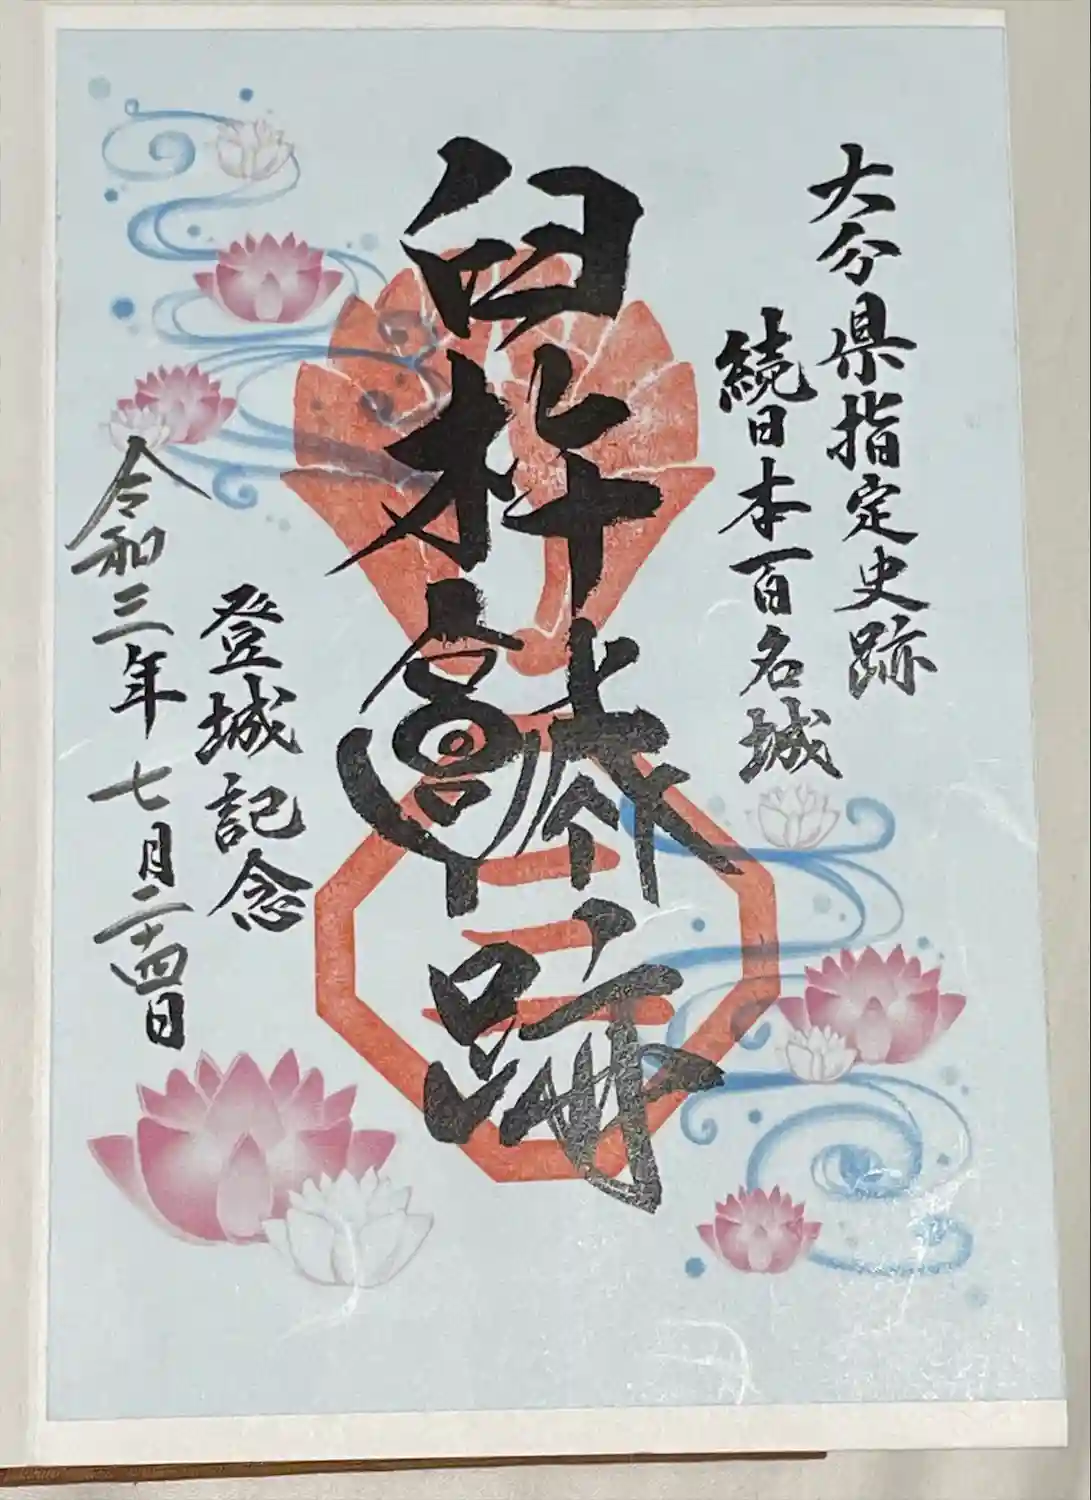 大分県指定史跡
続日本百名城
臼杵城跡
登城記念
令和三年七月二十四日